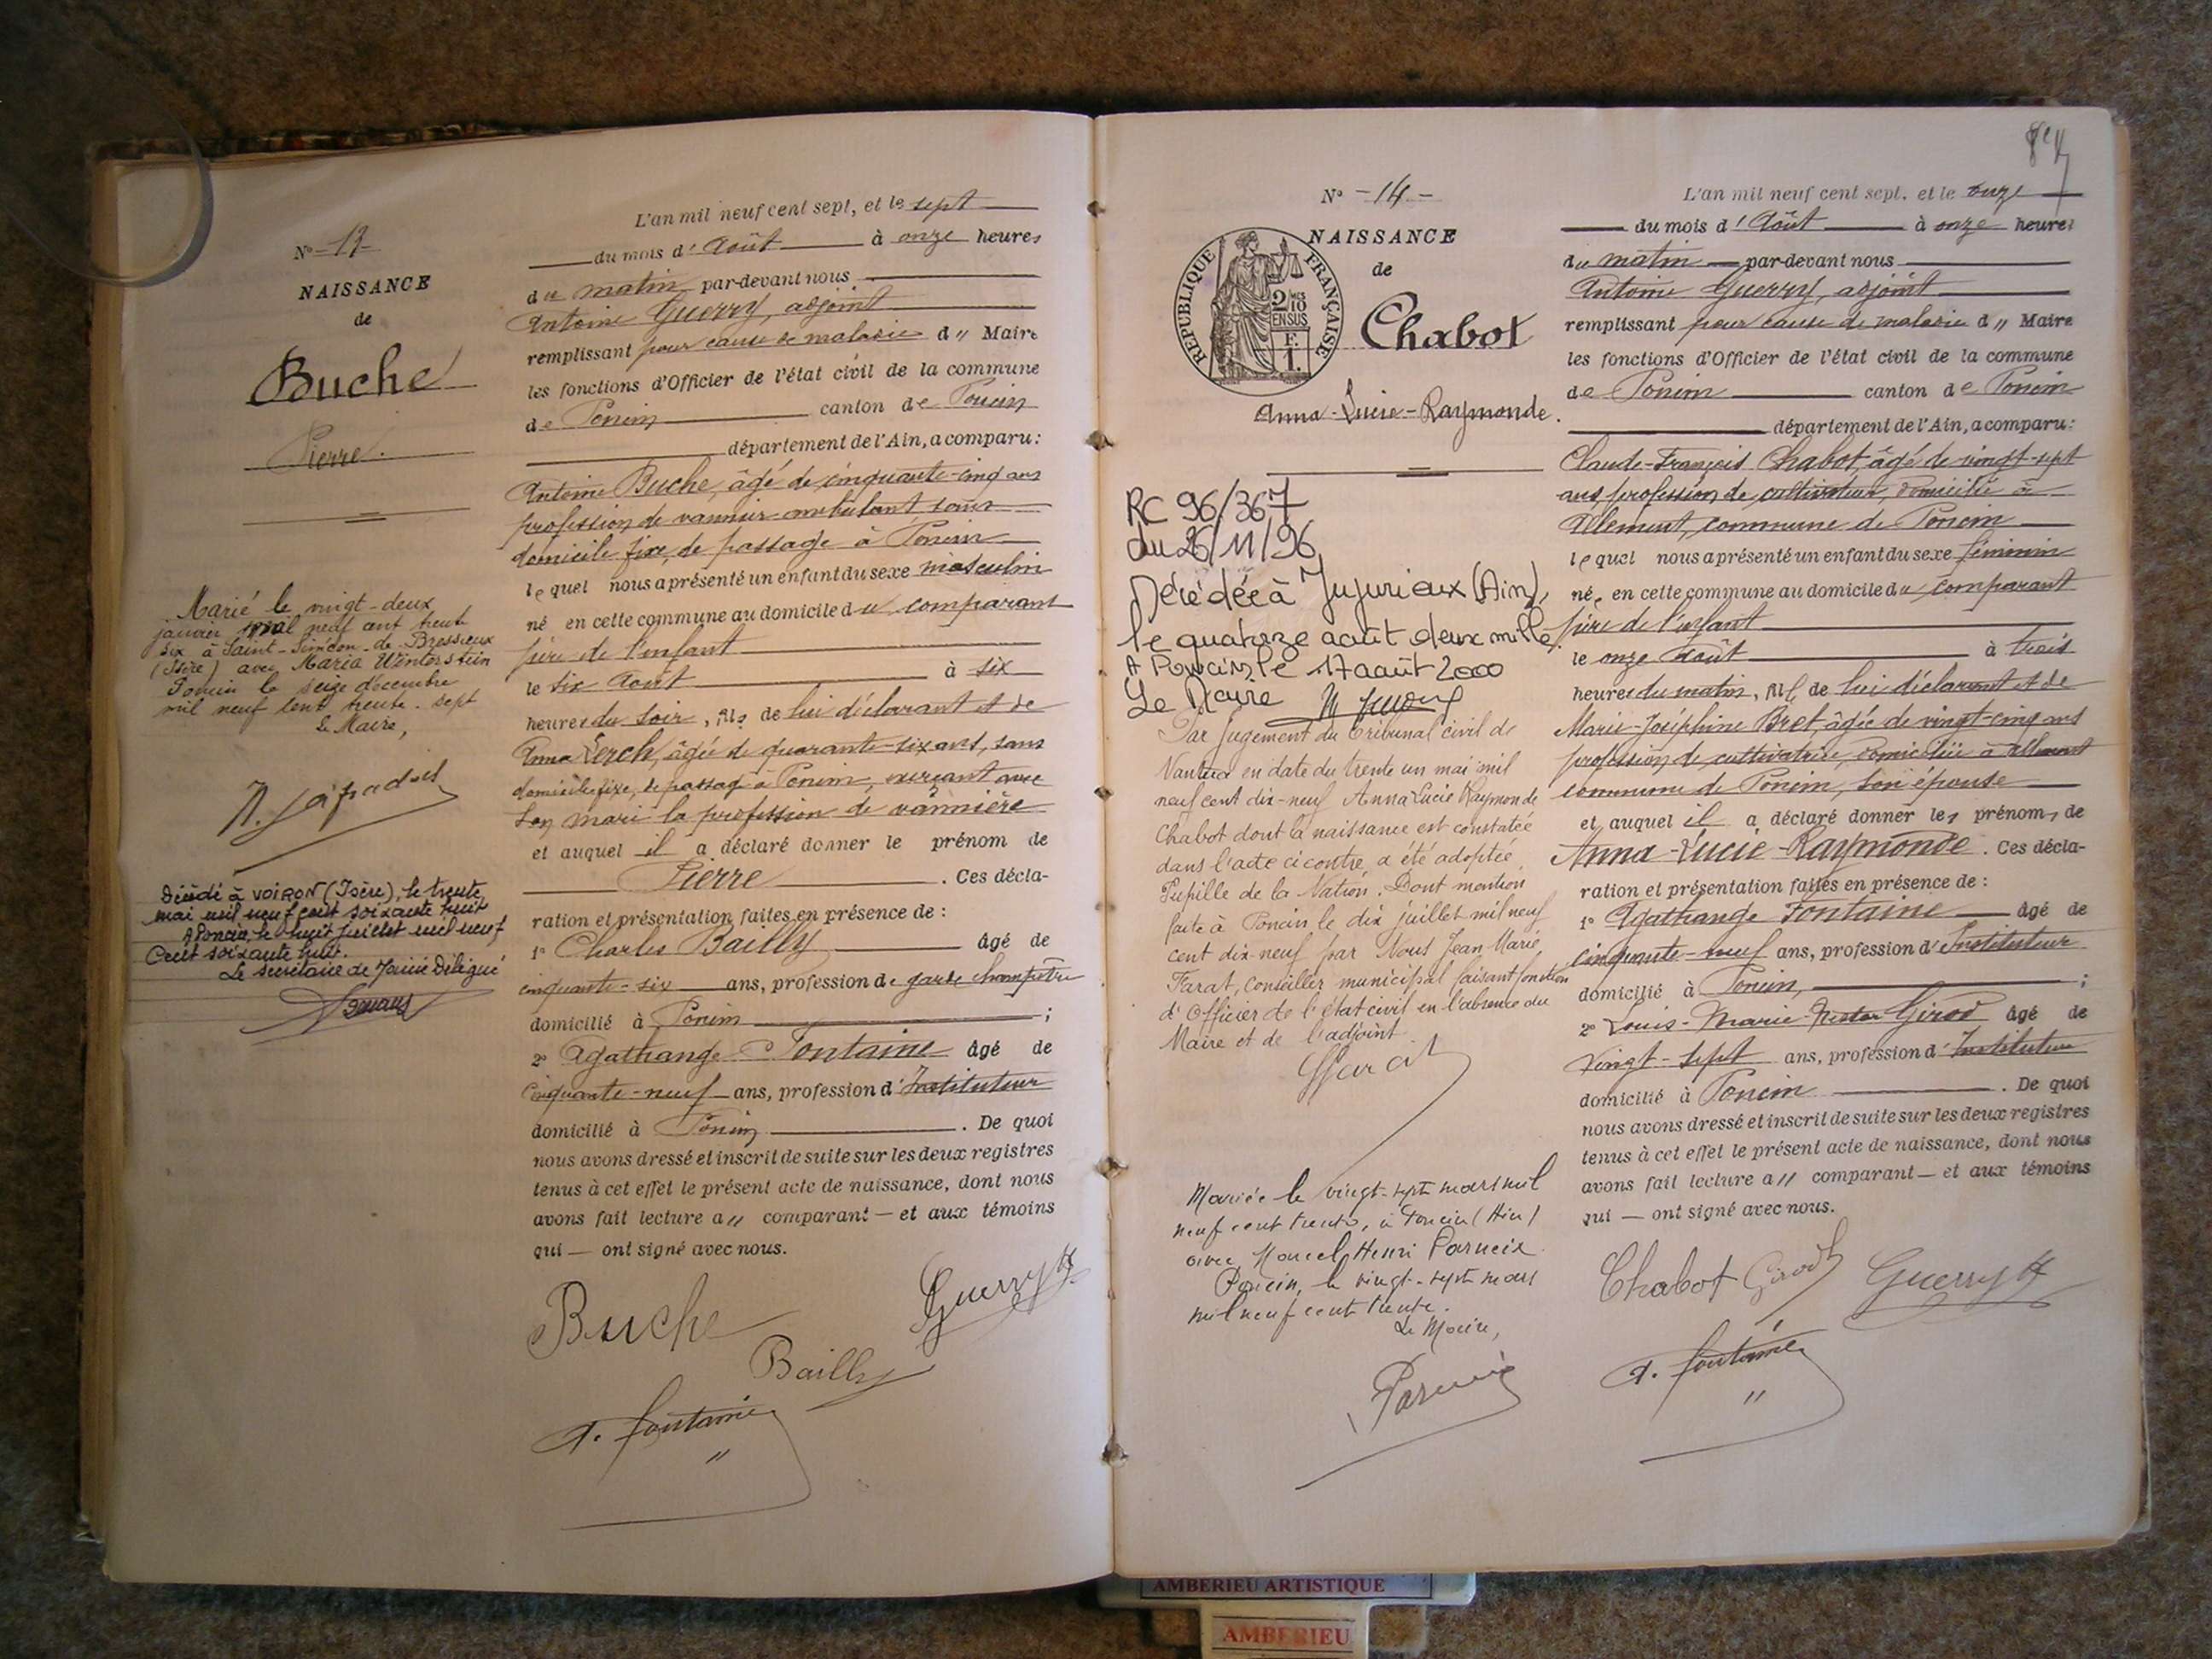 N° - 13 -
NAISSANCE
de
Buche
Pierre.
Marié le vingt-deux
janvier mil neuf cent trente
six à Saint-Siméon-de-Bressieux
(Isère) avec Maria Winterstein
Poncin le seize décembre
mil neuf cent trente-sept
Le Maire,
Décédé à VOIRON (Isère), le trente
mai mil neuf cent soixante huit
A Poncin, le huit juillet mil neuf
Cent soixante huit.
Le secrétaire de Mairie Délégué
L'an mil neuf cent sept, et le sept
du mois d'Août à onze heures
du matin par-devant nous
Antoine Guerry, adjoint
remplissant pour cause de maladie d " Maire
les fonctions d'Officier de l'état civil de la commune
de Poncin canton de Poncin
département de l'Ain, a comparu :
Antoine Buche, âgé de cinquante-cinq ans
profession de vannier ambulant sans
domicile fixe, de passage à Poncin
lequel nous a présenté un enfant du sexe masculin
né en cette commune au domicile du comparant
père de l'enfant
le six Août à six
heures du soir, fils de lui déclarant et de
Anna Lerch, âgée de quarante-six ans, sans
domicile fixe, de passage à Poncin, exerçant avec
son mari la profession de vannière
et auquel il a déclaré donner le prénom de
Pierre. Ces décla-
ration et présentation faites en présence de :
1° Charles Bailly âgé de
cinquante-six ans, profession de garde champêtre
domicilié à Poncin ;
2° Agathange Fontaine âgé de
cinquante-neuf ans, profession d'Instituteur
domicilié à Poncin. De quoi
nous avons dressé et inscrit de suite sur les deux registres
tenus à cet effet le présent acte de naissance, dont nous
avons fait lecture a " comparant — et aux témoins
qui — ont signé avec nous.
Buche
Guerry
Bailly
A. Fontaine
N° - 14 -
NAISSANCE
de
RÉPUBLIQUE FRANÇAISE
2/10
EN SUS
F.
1.
Chabot
Anna-Lucie-Raymonde.
RC 96/367
du 26/11/96
Décédée à Jujurieux (Ain),
le quatorze août deux mille
A Poncin, le 17 août 2000
Le Maire
Par jugement du Tribunal civil de
Nantua en date du trente un mai mil
neuf cent dix-neuf Anna Lucie Raymonde
Chabot dont la naissance est constatée
dans l'acte ci contre a été adoptée
Pupille de la Nation. Dont mention
faite à Poncin le dix juillet mil neuf
cent dix-neuf par Nous Jean Marie
Farat, conseiller municipal faisant fonction
d'Officier de l'état civil en l'absence du
Maire et de l'adjoint
Farat
Mariée le vingt-sept mars mil
neuf cent trente, à Poncin (Ain)
avec Marcel Henri Parneix.
Poncin, le vingt-sept mars
mil neuf cent trente.
Le Maire,
L'an mil neuf cent sept, et le onze
du mois d'Août à onze heures
du matin par-devant nous
Antoine Guerry, adjoint
remplissant pour cause de maladie d " Maire
les fonctions d'Officier de l'état civil de la commune
de Poncin canton de Poncin
département de l'Ain, a comparu :
Claude-François Chabot, âgé de vingt-sept
ans profession de cultivateur, domicilié à
Allement, commune de Poncin
lequel nous a présenté un enfant du sexe féminin
née en cette commune au domicile du comparant
père de l'enfant
le onze Août à trois
heures du matin, fille de lui déclarant et de
Marie-Joséphine Bret, âgée de vingt-cinq ans
profession de cultivatrice, domiciliée à Allement
commune de Poncin, son épouse
et auquel il a déclaré donner les prénoms de
Anna-Lucie-Raymonde. Ces décla-
ration et présentation faites en présence de :
1° Agathange Fontaine âgé de
cinquante-neuf ans, profession d'Instituteur
domicilié à Poncin, ;
2° Louis-Marie-Nestor Girod âgé de
vingt-sept ans, profession d'Instituteur
domicilié à Poncin. De quoi
nous avons dressé et inscrit de suite sur les deux registres
tenus à cet effet le présent acte de naissance, dont nous
avons fait lecture a " comparant — et aux témoins
qui — ont signé avec nous.
Chabot Girod Guerry
A. Fontaine
AMBERIEU ARTISTIQUE
AMBERIEU